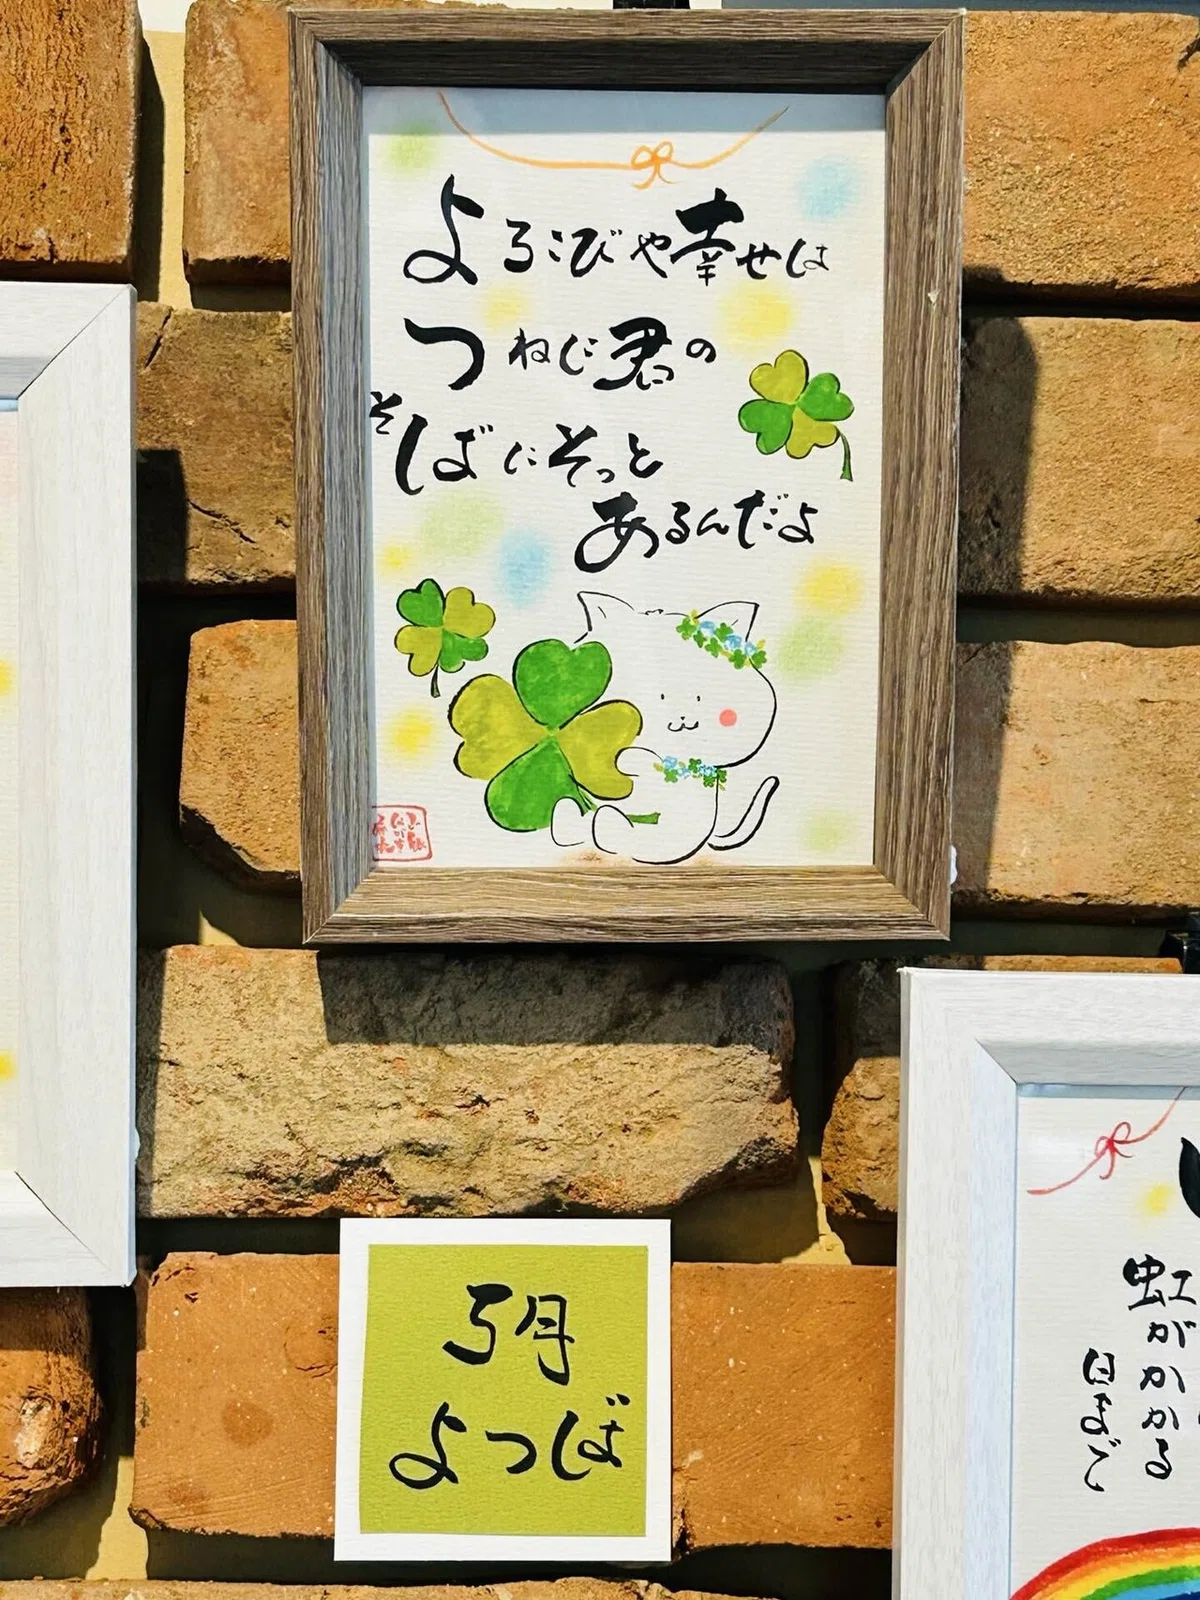 よろこびや幸せは
つねに君の
そばにそっと
あるんだよ
5月
よつば
虹がかかる
日まで